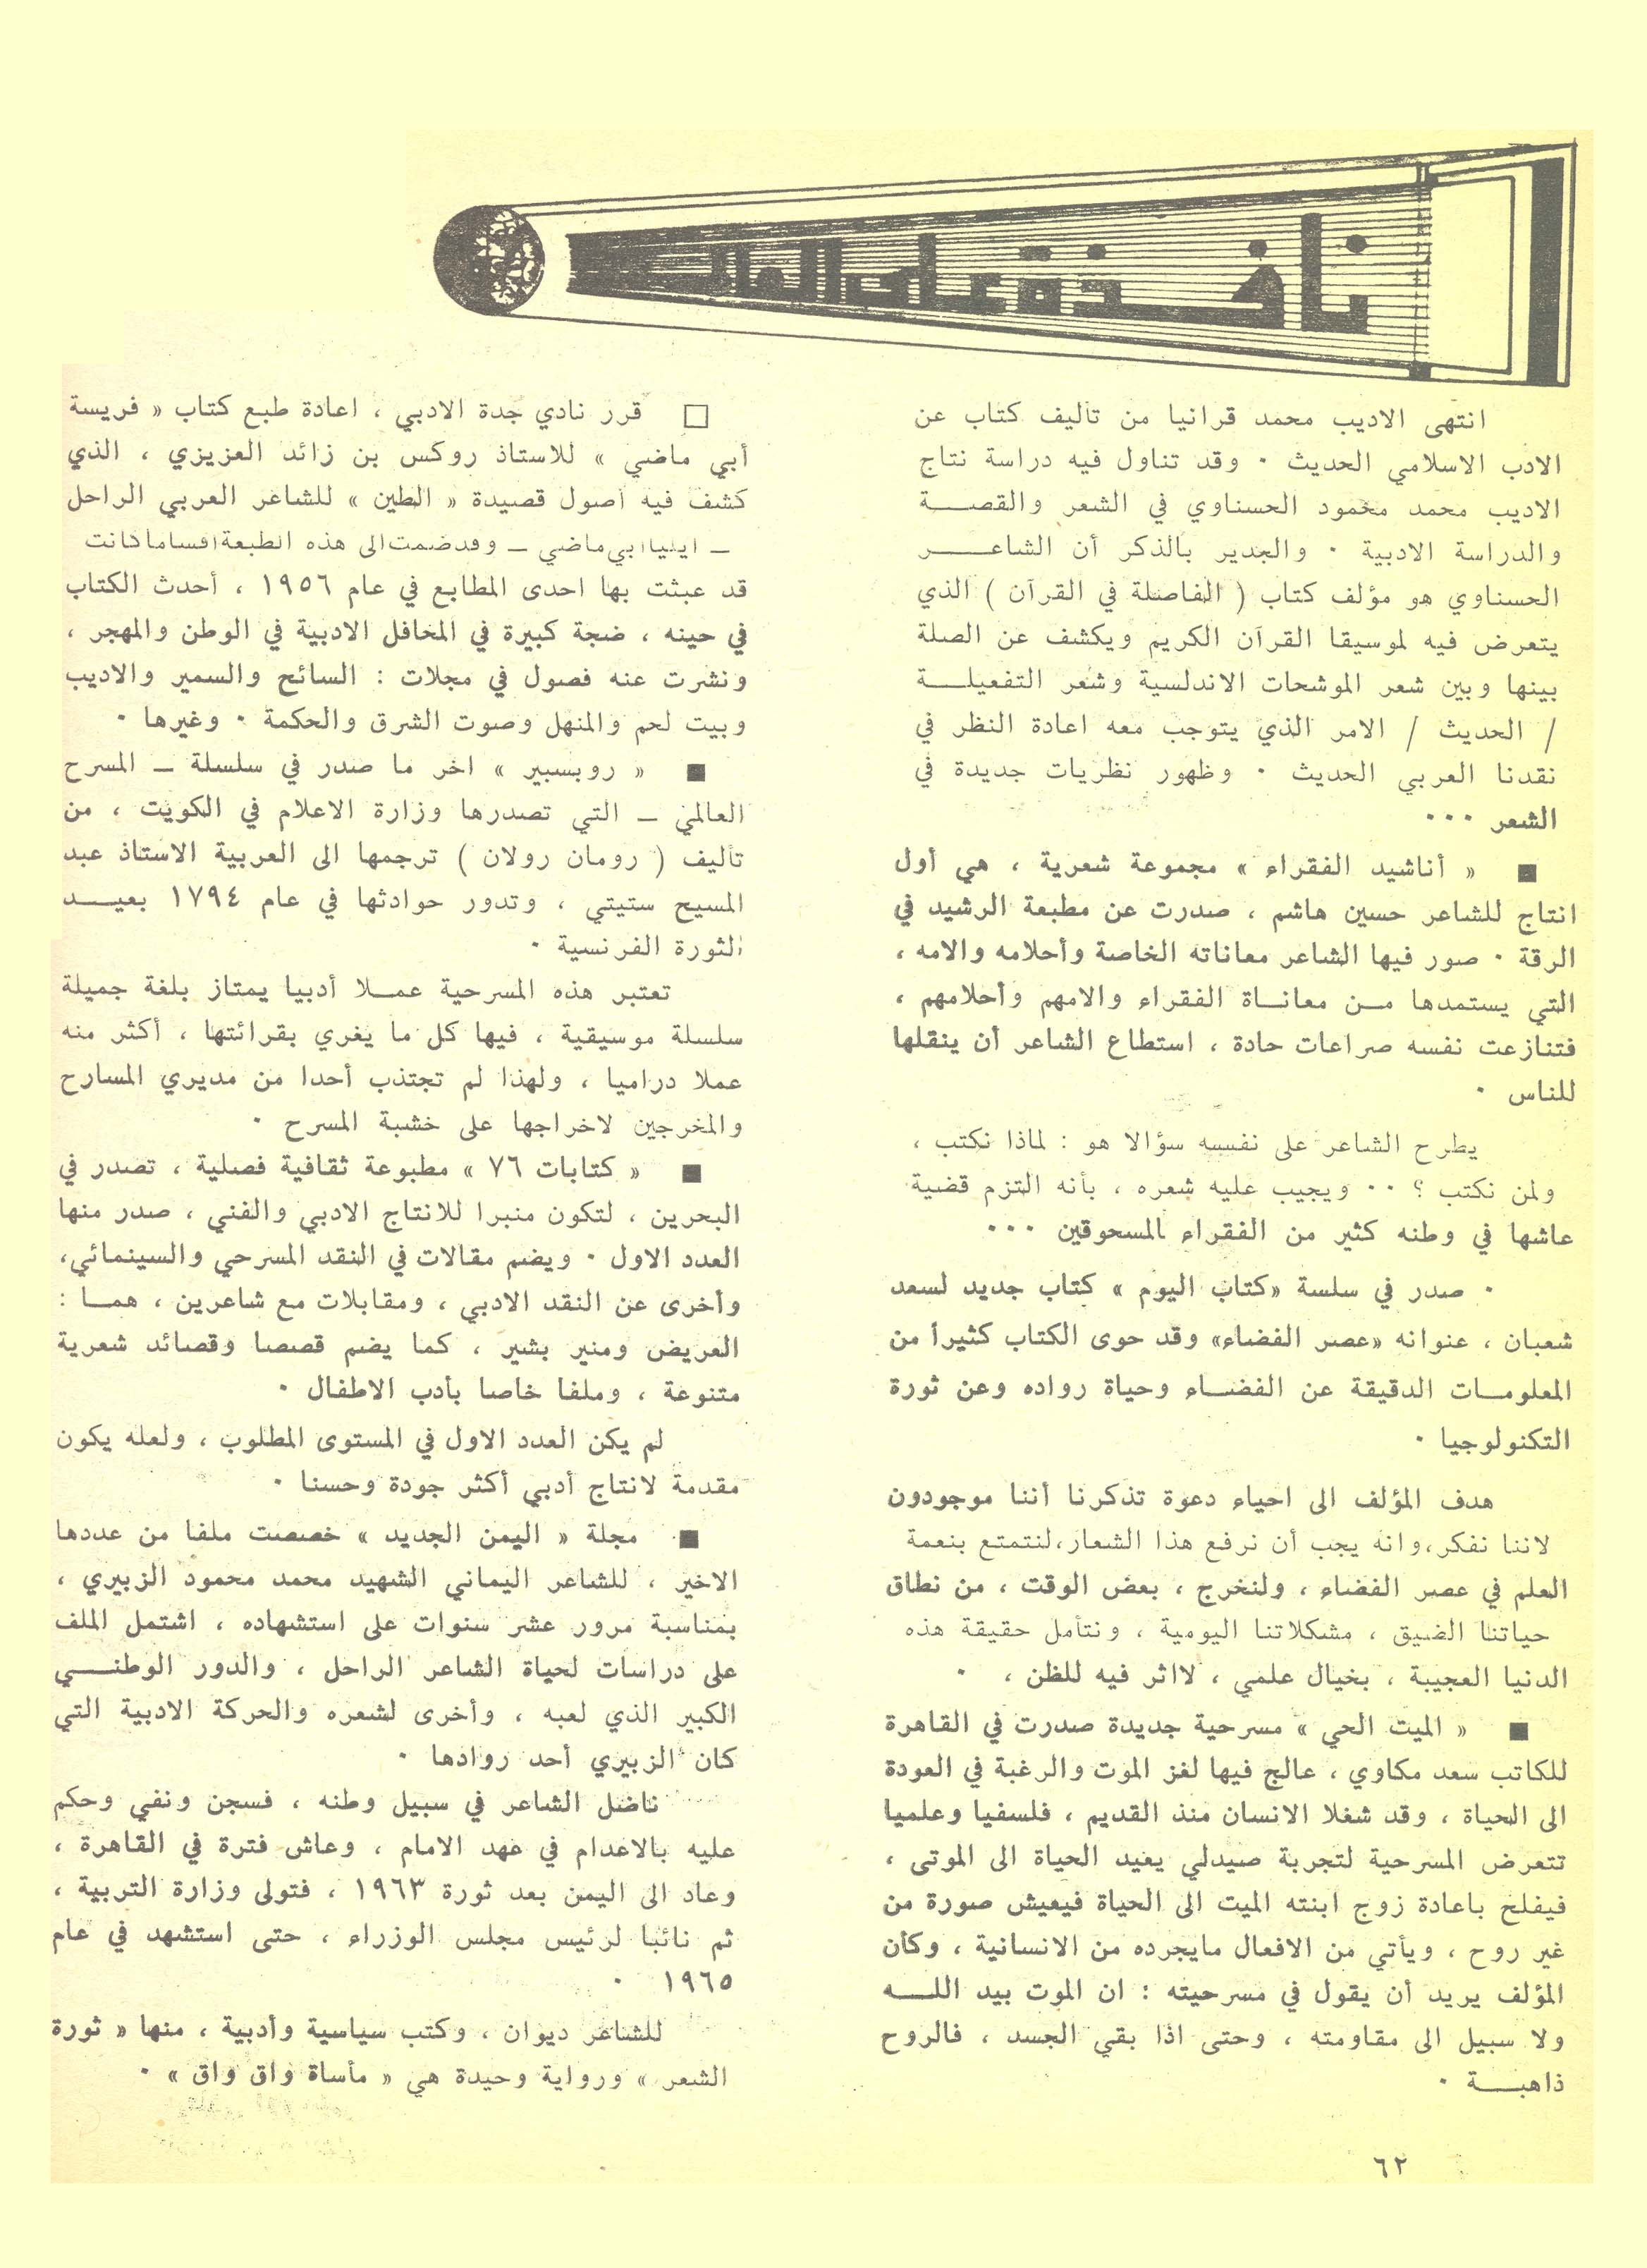 نافذة على العالم
انتهى الاديب محمد قرانيا من تأليف كتاب عن
الادب الاسلامي الحديث ٠ وقد تناول فيه دراسة نتاج
الاديب محمد محمود الحسناوي في الشعر والقصة
والدراسة الادبية ٠ والجدير بالذكر أن الشاعر
الحسناوي هو مؤلف كتاب ( الفاصلة في القرآن ) الذي
يتعرض فيه لموسيقا القرآن الكريم ويكشف عن الصلة
بينها وبين شعر الموشحات الاندلسية وشعر التفعيلة
/ الحديث / الامر الذي يتوجب معه اعادة النظر في
نقدنا العربي الحديث ٠ وظهور نظريات جديدة في
الشعر ٠٠٠
■ « أناشيد الفقراء » مجموعة شعرية ، هي أول
انتاج للشاعر حسين هاشم ، صدرت عن مطبعة الرشيد في
الرقة ٠ صور فيها الشاعر معاناته الخاصة وأحلامه والامه ،
التي يستمدها من معاناة الفقراء والامهم وأحلامهم ،
فتنازعت نفسه صراعات حادة ، استطاع الشاعر أن ينقلها
للناس ٠
يطرح الشاعر على نفسه سؤالا هو : لماذا نكتب ،
ولمن نكتب ؟ ٠٠ ويجيب عليه شعره ، بأنه التزم قضية
عاشها في وطنه كثير من الفقراء المسحوقين ٠٠٠
٠ صدر في سلسة «كتاب اليوم » كتاب جديد لسعد
شعبان ، عنوانه «عصر الفضاء» وقد حوى الكتاب كثيرأ من
المعلومات الدقيقة عن الفضاء وحياة رواده وعن ثورة
التكنولوجيا ٠
هدف المؤلف الى احياء دعوة تذكرنا أننا موجودون
لاننا نفكر،وانه يجب أن نرفع هذا الشعار،لنتمتع بنعمة
العلم في عصر الفضاء ، ولنخرج ، بعض الوقت ، من نطاق
حياتنا الضيق ، مشكلاتنا اليومية ، ونتأمل حقيقة هذه
الدنيا العجيبة ، بخيال علمي ، لااثر فيه للظن ، ٠
■ « الميت الحي » مسرحية جديدة صدرت في القاهرة
للكاتب سعد مكاوي ، عالج فيها لغز الموت والرغبة في العودة
الى الحياة ، وقد شغلا الانسان منذ القديم ، فلسفيا وعلميا
تتعرض المسرحية لتجربة صيدلي يعيد الحياة الى الموتى ،
فيفلح باعادة زوج ابنته الميت الى الحياة فيعيش صورة من
غير روح ، ويأتي من الافعال مايجرده من الانسانية ، وكأن
المؤلف يريد أن يقول في مسرحيته : ان الموت بيد الله
ولا سبيل الى مقاومته ، وحتى اذا بقي الجسد ، فالروح
ذاهبة ٠
□ قرر نادي جدة الادبي ، اعادة طبع كتاب « فريسة
أبي ماضي » للاستاذ روكس بن زائد العزيزي ، الذي
كشف فيه أصول قصيدة « الطين » للشاعر العربي الراحل
ــ ايليا ابي ماضي ــ وقد ضمت الى هذه الطبعة اقساما كانت
قد عبثت بها احدى المطابع في عام ١٩٥٦ ، أحدث الكتاب
في حينه ، ضجة كبيرة في المحافل الادبية في الوطن والمهجر ،
ونشرت عنه فصول في مجلات : السائح والسمير والاديب
وبيت لحم والمنهل وصوت الشرق والحكمة ٠ وغيرها ٠
■ « روبسبير » اخر ما صدر في سلسلة ــ المسرح
العالمي ــ التي تصدرها وزارة الاعلام في الكويت ، من
تأليف ( رومان رولان ) ترجمها الى العربية الاستاذ عبد
المسيح ستيتي ، وتدور حوادثها في عام ١٧٩٤ بعيد
الثورة الفرنسية ٠
تعتبر هذه المسرحية عملا أدبيا يمتاز بلغة جميلة
سلسلة موسيقية ، فيها كل ما يغري بقرائتها ، أكثر منه
عملا دراميا ، ولهذا لم تجتذب أحدا من مديري المسارح
والمخرجين لاخراجها على خشبة المسرح ٠
■ « كتابات ٧٦ » مطبوعة ثقافية فصلية ، تصدر في
البحرين ، لتكون منبرا للانتاج الادبي والفني ، صدر منها
العدد الاول ٠ ويضم مقالات في النقد المسرحي والسينمائي،
وأخرى عن النقد الادبي ، ومقابلات مع شاعرين ، هما :
العريض ومنير بشير ، كما يضم قصصا وقصائد شعرية
متنوعة ، وملفا خاصا بأدب الاطفال ٠
لم يكن العدد الاول في المستوى المطلوب ، ولعله يكون
مقدمة لانتاج أدبي أكثر جودة وحسنا ٠
■ مجلة « اليمن الجديد » خصصت ملفا من عددها
الاخير ، للشاعر اليماني الشهيد محمد محمود الزبيري ،
بمناسبة مرور عشر سنوات على استشهاده ، اشتمل الملف
على دراسات لحياة الشاعر الراحل ، والدور الوطني
الكبير الذي لعبه ، وأخرى لشعره والحركة الادبية التي
كان الزبيري أحد روادها ٠
ناضل الشاعر في سبيل وطنه ، فسجن ونفي وحكم
عليه بالاعدام في عهد الامام ، وعاش فترة في القاهرة ،
وعاد الى اليمن بعد ثورة ١٩٦٣ ، فتولى وزارة التربية ،
ثم نائبا لرئيس مجلس الوزراء ، حتى استشهد في عام
١٩٦٥ ٠
للشاعر ديوان ، وكتب سياسية وأدبية ، منها « ثورة
الشعر » ورواية وحيدة هي « مأساة واق واق » ٠
٦٢